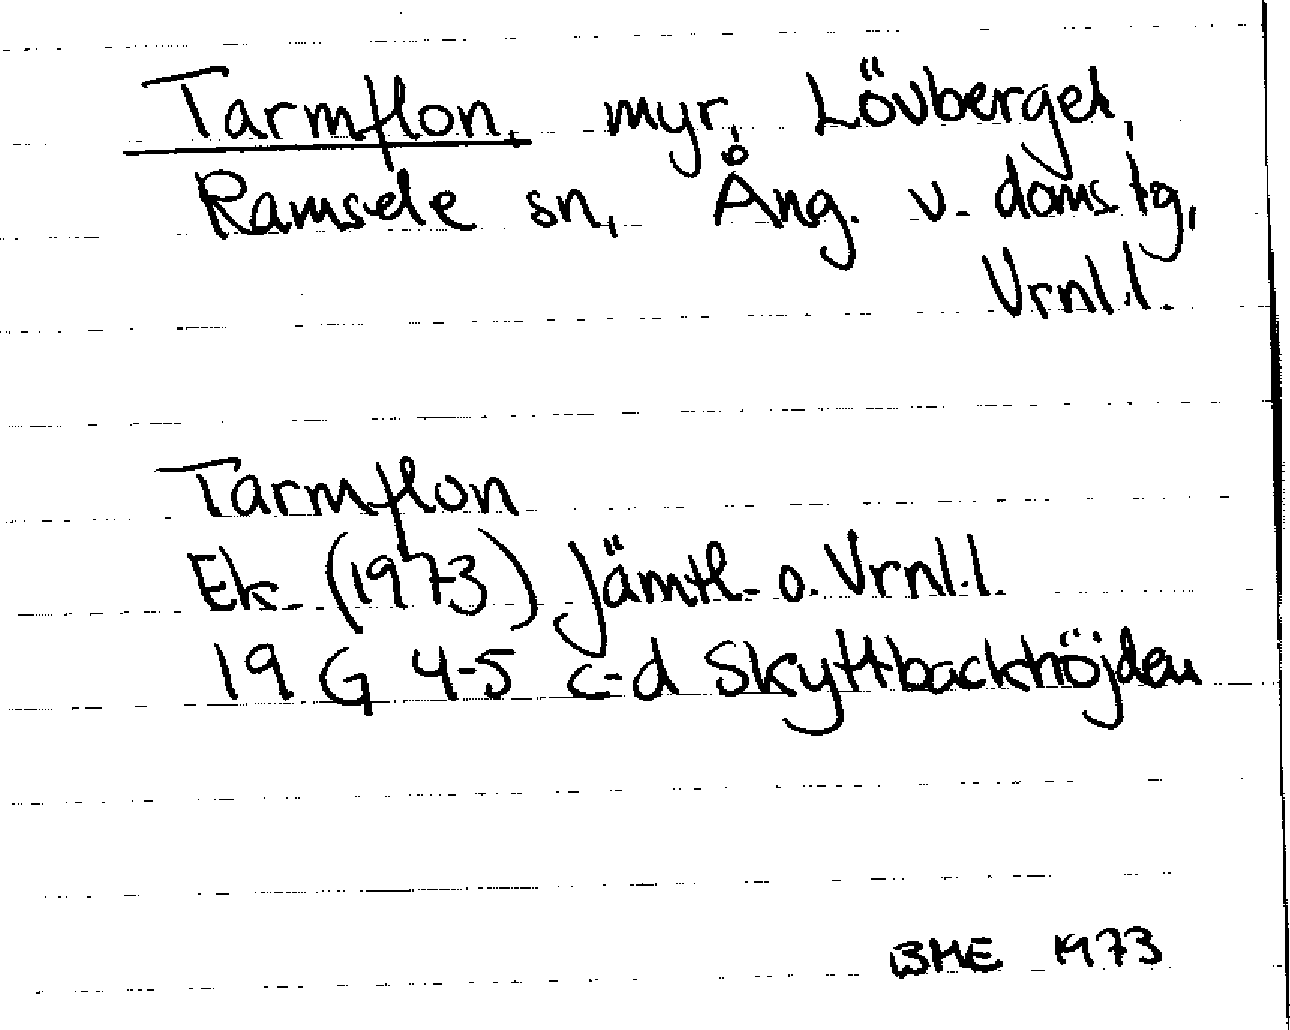 Tarmflon, myr, Lövberget,
Ramsele sn, Ång. v. doms.tg,
Vrnl.l.
Tarmflon
Ek. (1973) Jämtl. o. Vrnl.l.
19 G 4-5 c-d Skyttbackhöjden
BME 1973